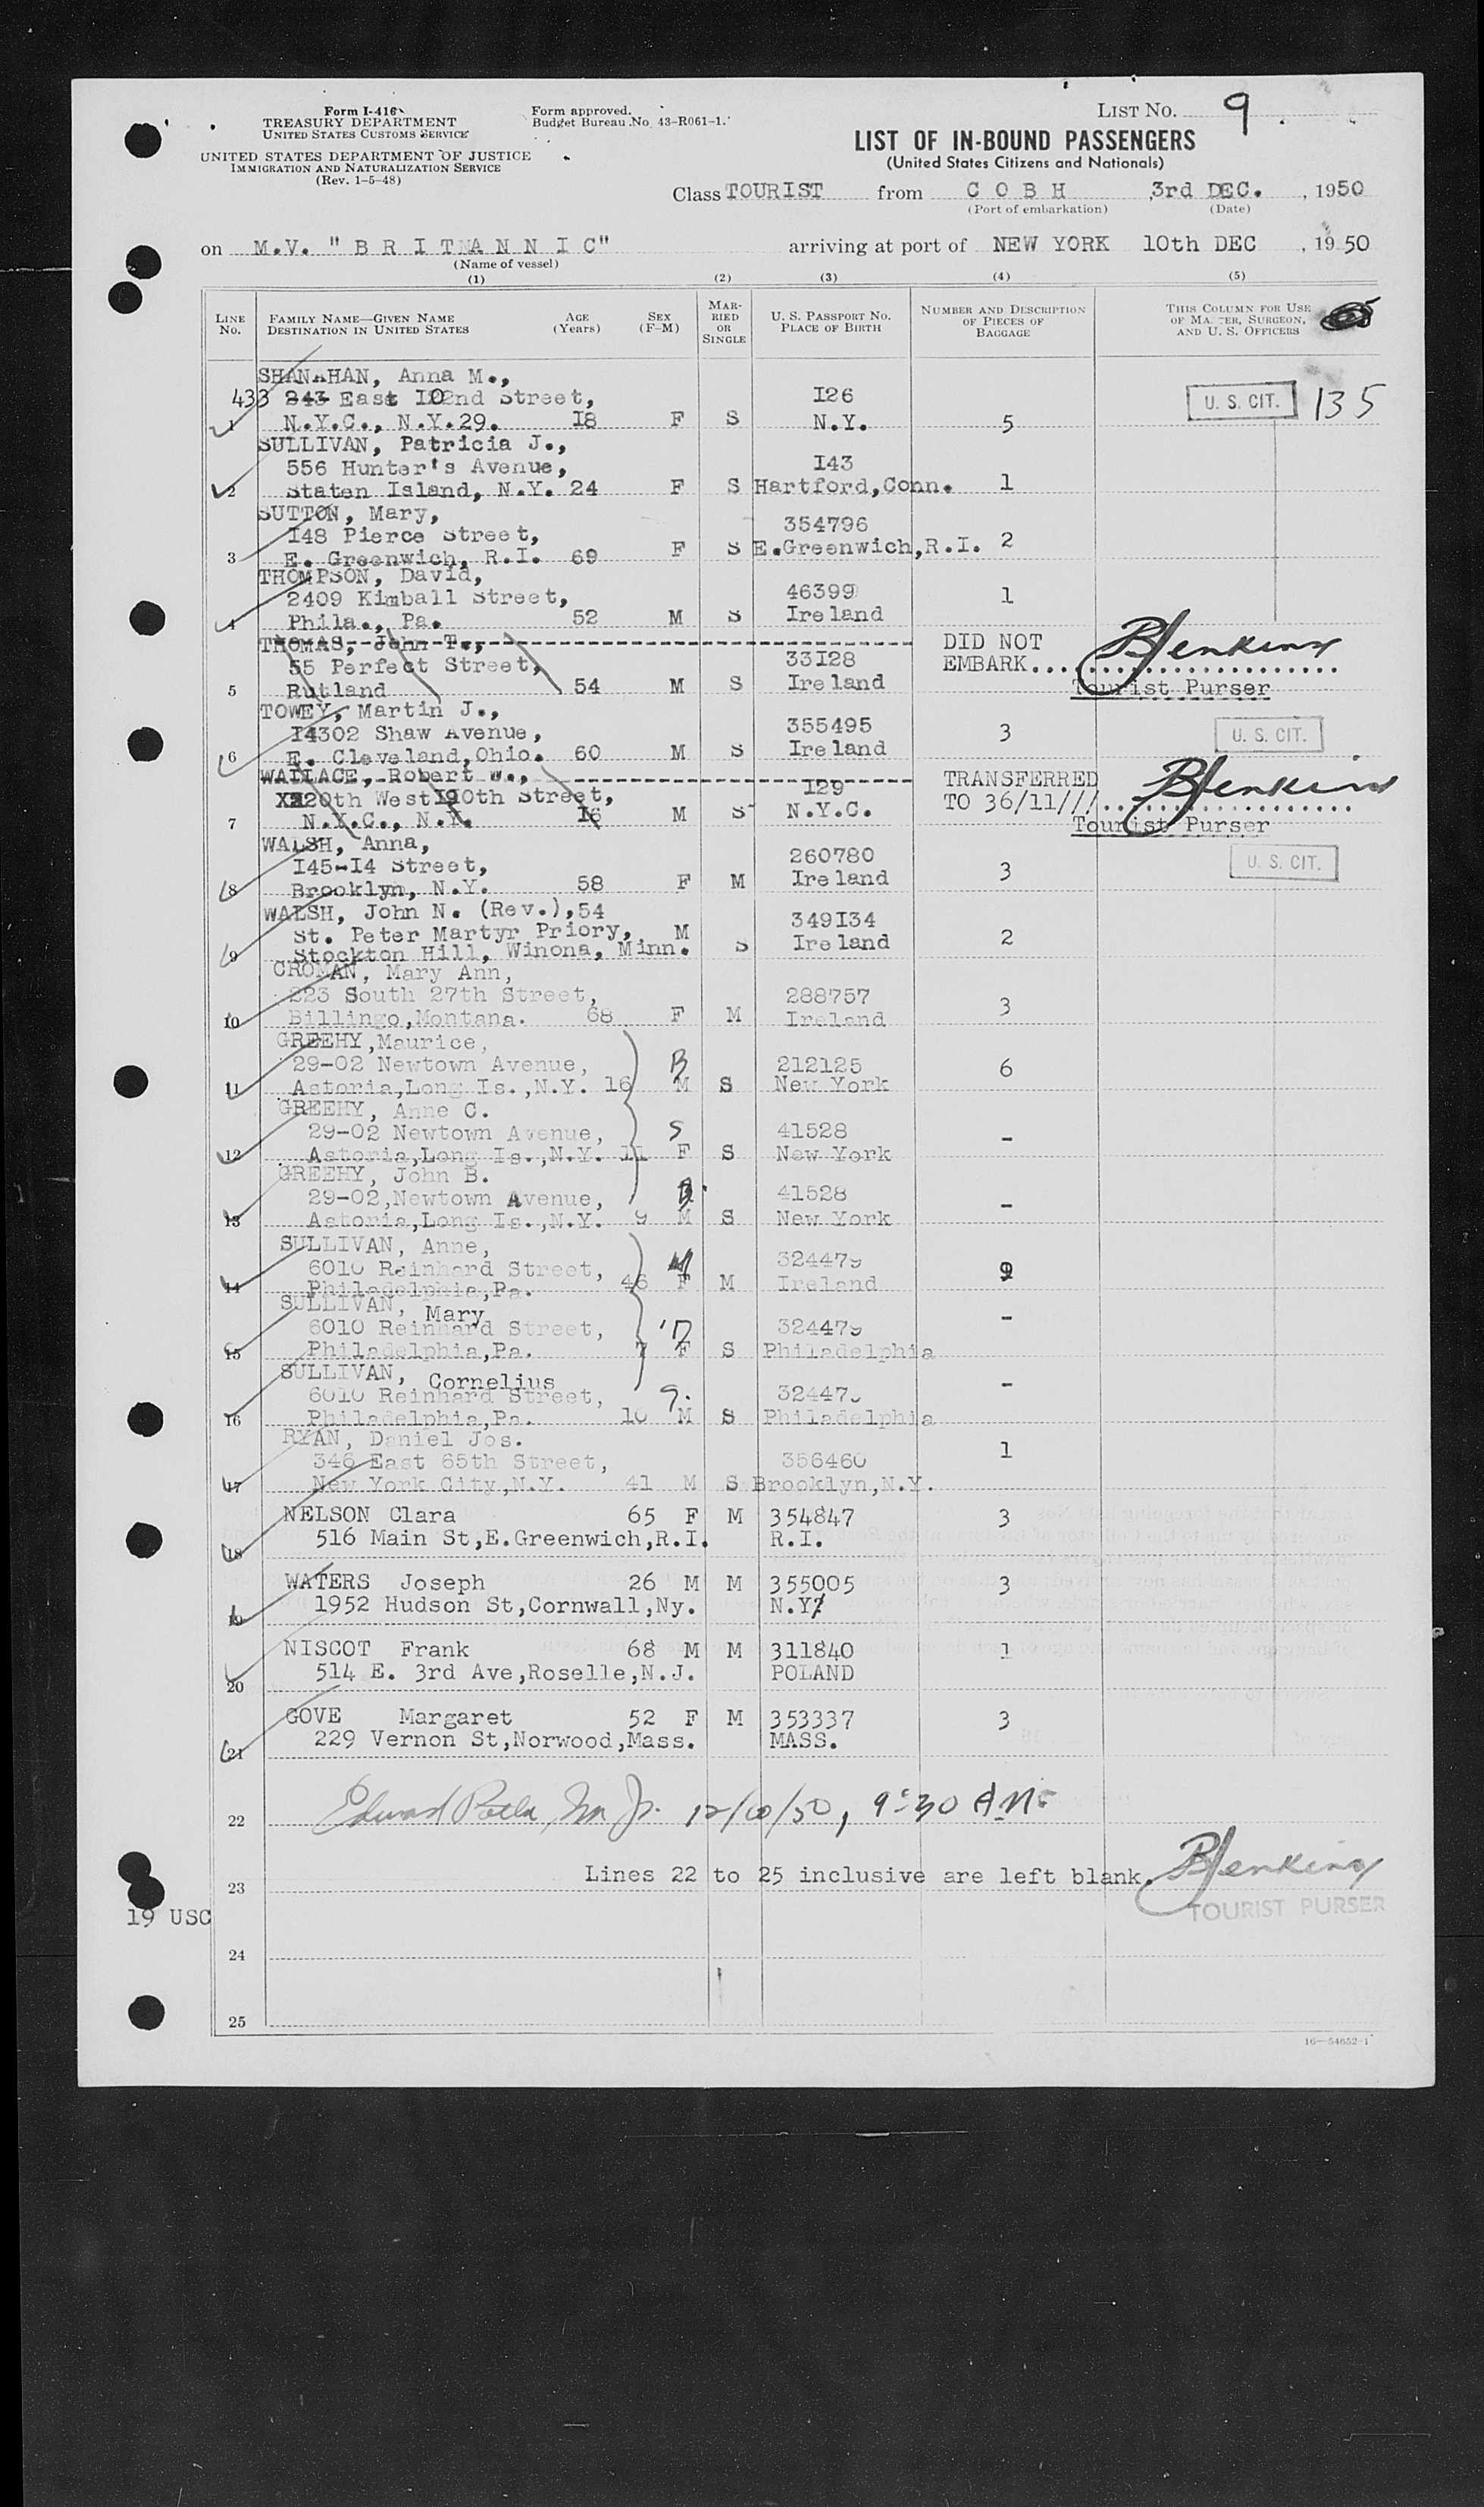 Form I-416
TREASURY DEPARTMENT
UNITED STATES CUSTOMS SERVICE
UNITED STATES DEPARTMENT OF JUSTICE
IMMIGRATION AND NATURALIZATION SERVICE
(Rev. 1-5-48)
Form approved.
Budget Bureau No. 43-R061-1.
LIST NO. 9
LIST OF IN-BOUND PASSENGERS
(United States Citizens and Nationals)
Class TOURIST from C O B H, 3rd DEC., 1950
(Port of embarkation) (Date)
on M.V. "B R I T A N N I C" arriving at port of NEW YORK 10th DEC, 1950
(Name of vessel)
(1) (2) (3) (4) (5)
LINE NO.
FAMILY NAME—GIVEN NAME
DESTINATION IN UNITED STATES
AGE (Years)
SEX (F-M)
MARRIED OR SINGLE
U. S. PASSPORT NO.
PLACE OF BIRTH
NUMBER AND DESCRIPTION OF PIECES OF BAGGAGE
THIS COLUMN FOR USE OF MASTER, SURGEON, AND U. S. OFFICERS
SHANAHAN, Anna M.,
433 243 East 102nd Street, I26 U. S. CIT. 135
1 N.Y.C., N.Y.29. I8 F S N.Y. 5
SULLIVAN, Patricia J.,
556 Hunter's Avenue, I43
2 Staten Island, N.Y. 24 F S Hartford,Conn. 1
SUTTON, Mary,
I48 Pierce Street, 354796
3 E. Greenwich, R.I. 69 F S E.Greenwich,R.I. 2
THOMPSON, David,
2409 Kimball Street, 46399 1
4 Phila., Pa. 52 M S Ireland
THOMAS, John T., DID NOT
55 Perfect Street, 33I28 EMBARK.... BJenkins
5 Rutland 54 M S Ireland Tourist Purser
TOWEY, Martin J.,
I4302 Shaw Avenue, 355495 3 U. S. CIT.
6 E. Cleveland,Ohio. 60 M S Ireland
WALLACE, Robert W., TRANSFERRED
20th West 190th Street, I29 TO 36/11/// BJenkins
7 N.Y.C., N.Y. I6 M S N.Y.C. Tourist Purser
WALSH, Anna,
I45-I4 Street, 260780 3 U. S. CIT.
8 Brooklyn, N.Y. 58 F M Ireland
WALSH, John N. (Rev.),54
St. Peter Martyr Priory, M 349I34
9 Stockton Hill, Winona, Minn. S Ireland 2
CROMAN, Mary Ann,
223 South 27th Street, 288757 3
10 Billingo,Montana. 68 F M Ireland
GREEHY,Maurice,
29-02 Newtown Avenue, B 212125 6
11 Astoria,Long Is.,N.Y. 16 M S New York
GREEHY, Anne C.
29-02 Newtown Avenue, S 41528 -
12 Astoria,Long Is.,N.Y. 11 F S New York
GREEHY, John B.
29-02,Newtown Avenue, B 41528 -
13 Astoria,Long Is.,N.Y. 9 M S New York
SULLIVAN, Anne,
6010 Reinhard Street, M 324479 9
14 Philadelphia,Pa. 46 F M Ireland
SULLIVAN, Mary
6010 Reinhard Street, D 324479 -
15 Philadelphia,Pa. 7 F S Philadelphia
SULLIVAN, Cornelius
6010 Reinhard Street, 324479 -
16 Philadelphia,Pa. 10 M S Philadelphia
RYAN, Daniel Jos.
346 East 65th Street, 356460 1
17 New York City,N.Y. 41 M S Brooklyn,N.Y.
NELSON Clara 65 F M 354847 3
18 516 Main St,E.Greenwich,R.I. R.I.
WATERS Joseph 26 M M 355005 3
19 1952 Hudson St,Cornwall,Ny. N.Y.
NISCOT Frank 68 M M 311840 1
20 514 E. 3rd Ave,Roselle,N.J. POLAND
GOVE Margaret 52 F M 353337 3
21 229 Vernon St,Norwood,Mass. MASS.
22 Edward 12/10/50, 9:30 AM
23 Lines 22 to 25 inclusive are left blank. BJenkins
TOURIST PURSER
19 USC
24
25
16—54652-1